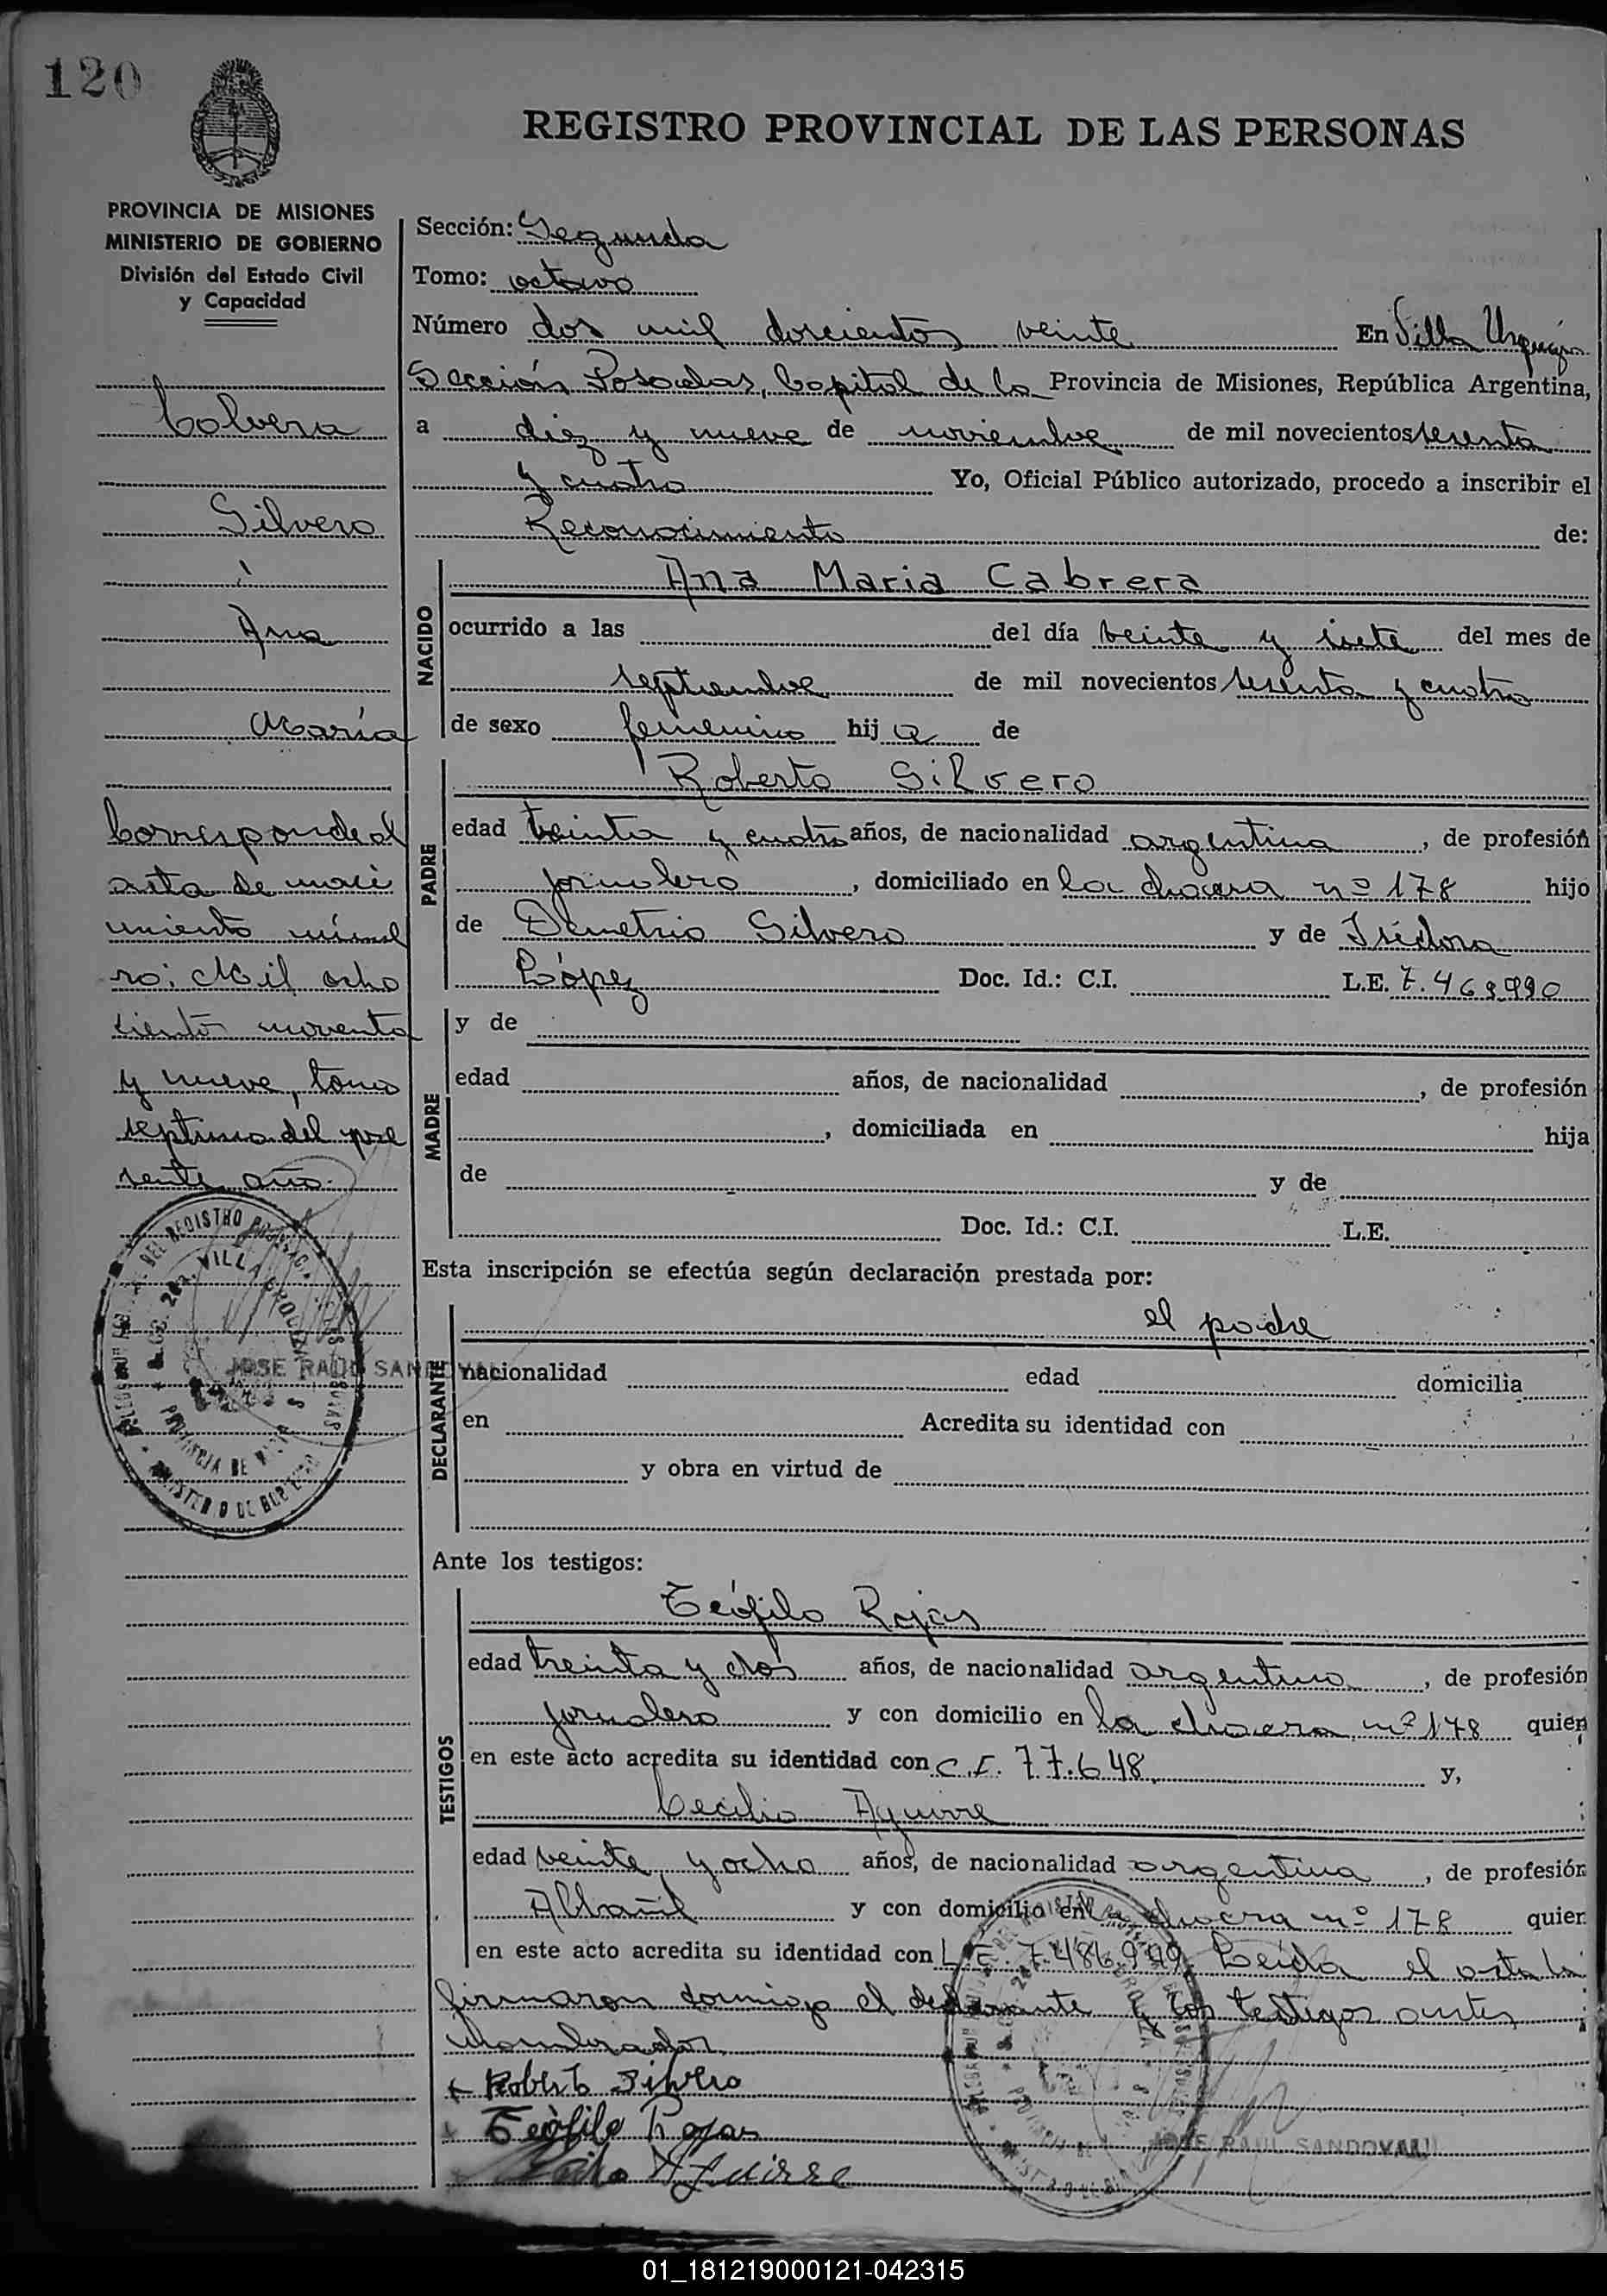 120
REGISTRO PROVINCIAL DE LAS PERSONAS
PROVINCIA DE MISIONES
MINISTERIO DE GOBIERNO
División del Estado Civil
y Capacidad
Silvero
Ana
María
Corresponde al
acta de naci
miento núme
ro: Mil ocho
ciento noventa
y nueve, tomo
septimo del pre
sente año.
Sección: Segunda
Tomo: octavo
Número dos mil doscientos veinte En Villa Urquiza
Sección Posadas, Capital de la Provincia de Misiones, República Argentina,
a diez y nueve de noviembre de mil novecientos sesenta
y cuatro Yo, Oficial Público autorizado, procedo a inscribir el
Reconocimiento de:
NACIDO
Ana Maria Cabrera
ocurrido a las del día veinte y siete del mes de
septiembre de mil novecientos sesenta y cuatro
de sexo femenino hija de
PADRE
Roberto Silvero
edad treinta y cuatro años, de nacionalidad argentina, de profesión
jornalero, domiciliado en la chacra nº 178 hijo
de Demetrio Silvero y de Isidora
López Doc. Id.: C.I. L.E. 7.469.990
MADRE
y de
edad años, de nacionalidad , de profesión
, domiciliada en hija
de y de
Doc. Id.: C.I. L.E.
Esta inscripción se efectúa según declaración prestada por:
DECLARANTE
el padre
nacionalidad edad domicilia
en Acredita su identidad con
y obra en virtud de
JOSE RAUL SANDOVAL
Ante los testigos:
TESTIGOS
Teófilo Rojas
edad treinta y dos años, de nacionalidad argentino, de profesión
jornalero y con domicilio en la chacra nº 178 quien
en este acto acredita su identidad con C.I. 77.648 y,
Cecilio Aguirre
edad veinte y ocho años, de nacionalidad argentina, de profesión
Albañil y con domicilio en la chacra nº 178 quien
en este acto acredita su identidad con L.E. 7.486.999. Leida el acta la
firmaron conmigo el declarante y los testigos antes
nombrados.
Roberto Silvero
Teófilo Rojas
Aguirre
JOSE RAUL SANDOVAL
01_181219000121-042315